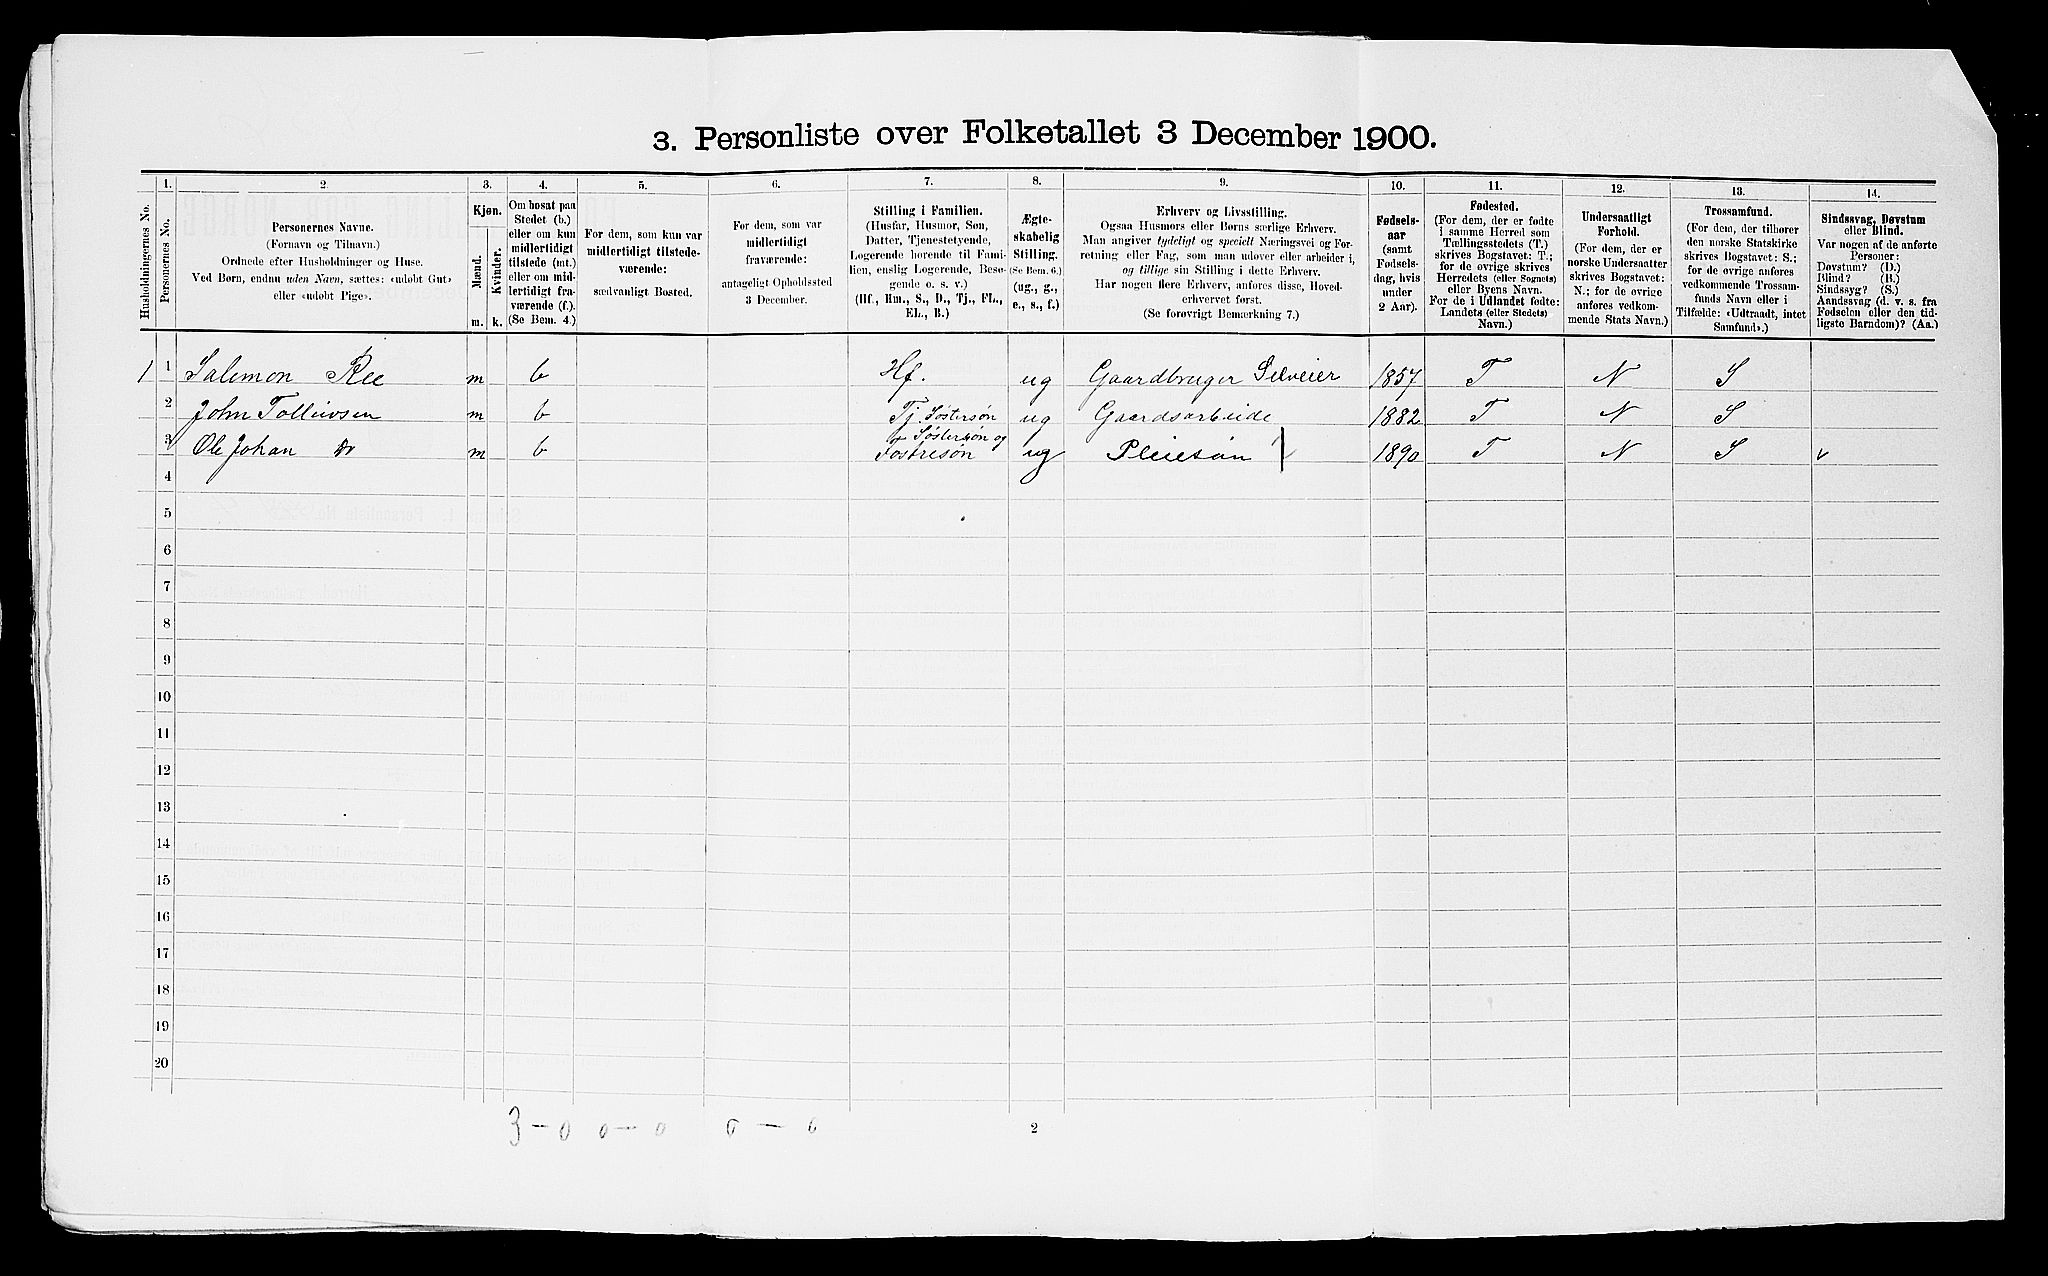 3. Personliste over Folketallet 3 December 1900.
Husholdningernes No.
1.
Personernes No.
2.
Personernes Navne.
(Fornavn og Tilnavn.)
Ordnede efter Husholdninger og Huse.
Ved Børn, endnu uden Navn, sættes: «udøbt Gut»
eller «udøbt Pige».
3.
Kjøn.
Mænd.
Kvinder.
m. k.
4.
Om bosat paa
Stedet (b.)
eller om kun
midlertidigt
tilstede (mt.)
eller om mid-
lertidigt fra-
værende (f.).
(Se Bem. 4.)
5.
For dem, som kun var
midlertidigt tilstede-
værende:
sædvanligt Bosted.
6.
For dem, som var
midlertidigt
fraværende:
antageligt Opholdssted
3 December.
7.
Stilling i Familien.
(Husfar, Husmor, Søn,
Datter, Tjenestetyende,
Logerende hørende til Fami-
lien, enslig Logerende, Besø-
gende o. s. v.)
(Hf., Hm., S., D., Tj., FL.,
EL., B.)
8.
Ægte-
skabelig
Stilling.
(Se Bem. 6.)
(ug., g.,
e., s., f.)
9.
Erhverv og Livsstilling.
Ogsaa Husmors eller Børns særlige Erhverv.
Man angiver tydeligt og specielt Næringsvei og For-
retning eller Fag, som man udøver eller arbeider i,
og tillige sin Stilling i dette Erhverv.
Har nogen flere Erhverv, anføres disse, Hoved-
erhvervet først.
(Se forøvrigt Bemærkning 7.)
10.
Fødsels-
aar
(samt
Fødsels-
dag, hvis
under
2 Aar).
11.
Fødested.
(For dem, der er fødte
i samme Herred som
Tællingsstedets (T.)
skrives Bogstavet: T.;
for de øvrige skrives
Herredets (eller Sognets)
eller Byens Navn.
For de i Udlandet fødte:
Landets (eller Stedets)
Navn.)
12.
Undersaatligt
Forhold.
(For dem, der er
norske Undersaatter
skrives Bogstavet:
N.; for de øvrige
anføres vedkom-
mende Stats Navn.)
13.
Trossamfund.
(For dem, der tilhører
den norske Statskirke
skrives Bogstavet: S.;
for de øvrige anføres
vedkommende Trossam-
funds Navn eller i
Tilfælde: «Udtraadt, intet
Samfund».)
14.
Sindssvag, Døvstum
eller Blind.
Var nogen af de anførte
Personer:
Døvstum? (D.)
Blind? (B.)
Sindssyg? (S.)
Aandssvag (d. v. s. fra
Fødselen eller den tid-
ligste Barndom)? (Aa.)
1 1 Salemon Ree m b Hf. ug Gaardbruger Selveier 1857 T N S
2 John Tolleivsen m b Tj. Søstersøn ug Gaardsarbeide 1882 T N S
3 Ole Johan Do m b Søstersøn og Fostresøn ug Pleiesøn 1890 T N S
4
5
6
7
8
9
10
11
12
13
14
15
16
17
18
19
20
3 - 0 0 - 0 0 - 0
2